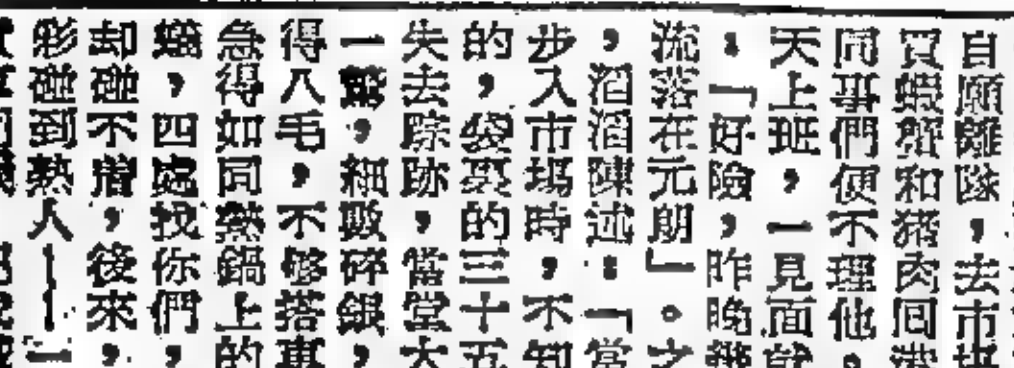 自願離隊,去市場
買蝦蟹和猪肉囘港
同事們便不理他。
天上班,一見面就
:「好險,昨晚幾
流落在元朗」。之
,滔滔陳述:「當
步入市場時,不知
的,袋裏的三十五
失去踪跡,當堂大
一驚,細數碎銀,
得八毛,不够搭車
急得如同熱鍋上的
蟻,四處找你們,
却碰不着,後來,
彩碰到熱人——一